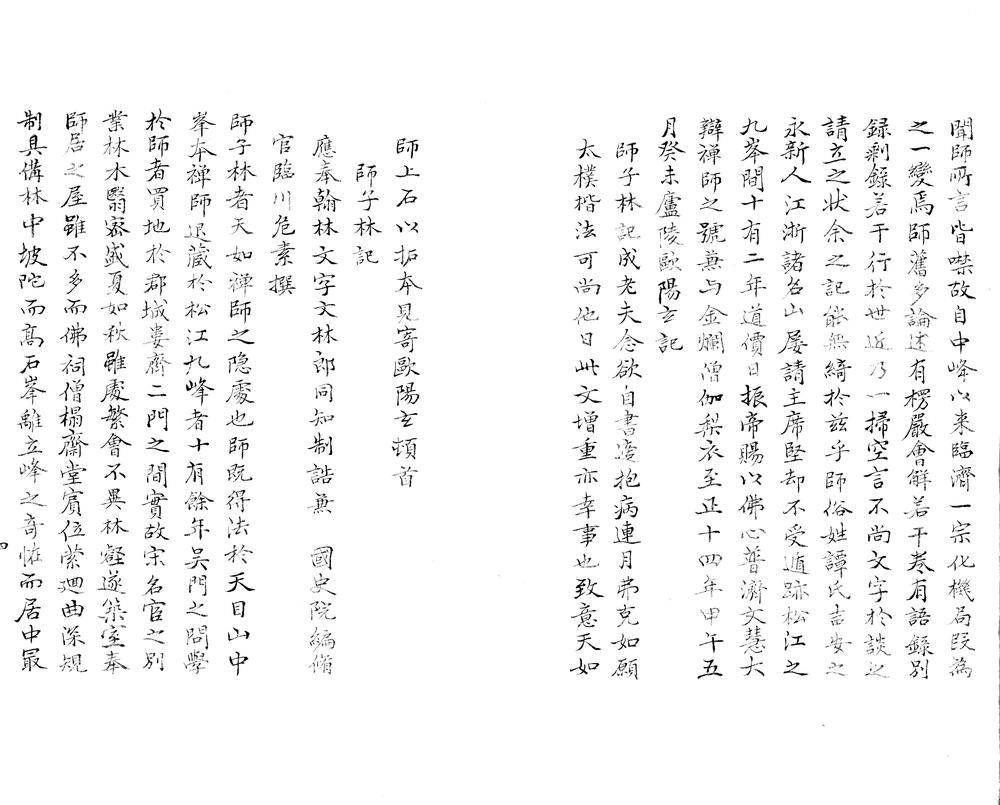 聞師所言皆噤故自中峰以来臨濟一宗化機局段為
之一變焉師舊多論述有楞嚴會解若干卷有語錄別
録剩錄若干行於世近乃一掃空言不尚文字於談辶
請立之状余之記能無綺於兹乎師俗姓譚氏吉安之
永新人江浙諸名山屡請主席堅却不受遁跡松江之
九峯間十有二年道價日振帝賜以佛心普濟文慧大
辯禅師之號兼与金襴僧伽梨衣至正十四年甲午五
月癸未廬陵歐陽玄記
師子林記成老夫念欲自書适抱病連月弗克如願
太樸楷法可尚他日此文增重亦幸事也致意天如
師上石以拓本見寄歐陽玄頓首
師子林記
應奉翰林文字文林郎同知制誥兼　國史院編脩
官臨川危素撰
師子林者天如禅師之隐處也師既得法於天目山中
峯本禅師退藏於松江九峰者十有餘年吴門之問學
於師者買地於郡城婁齊二門之間實故宋名宦之別
業林木翳密盛夏如秋雖處繁會不異林壑遂築室奉
師居之屋雖不多而佛祠僧榻齋堂賓位縈迴曲深規
制具備林中坡陀而高石峯離立峰之奇恠而居中最